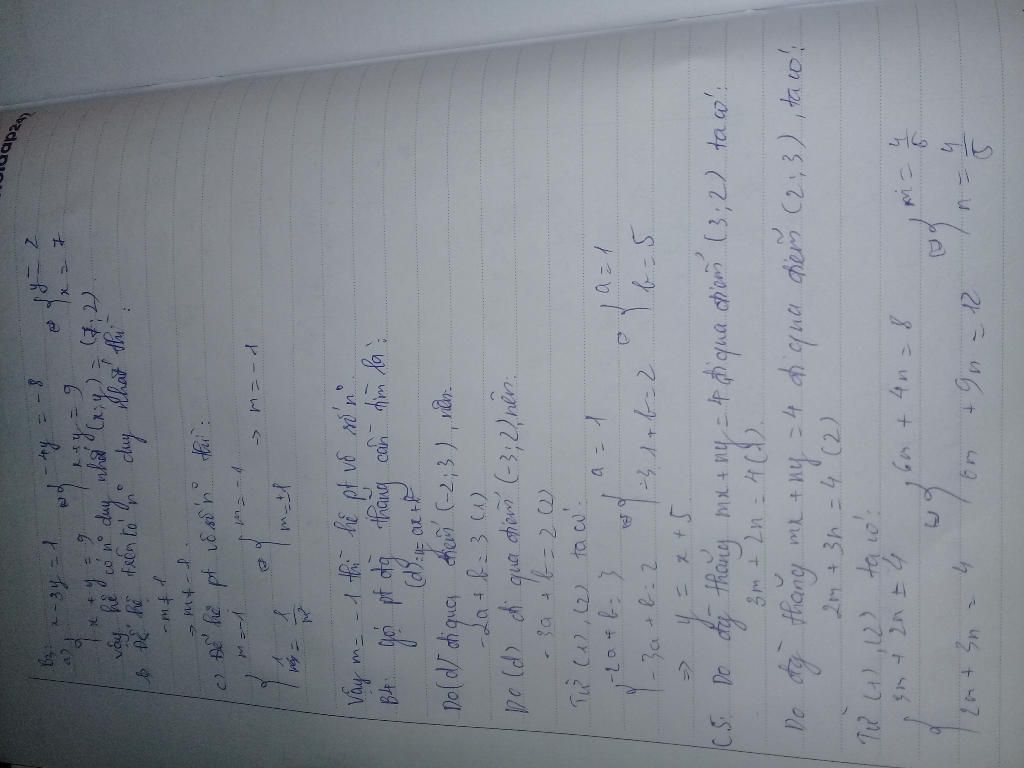 B3:
a) { x - 3y = 1 ⇔ { -4y = -8 ⇔ { y = 2
{ x + y = 9 { x + y = 9 { x = 7
Vậy hệ có n° duy nhất (x, y) = (7; 2).
b Để hệ trên có n° duy nhất thì:
-m ≠ 1
⇒ m ≠ -1
c) Để hệ pt vô số n° thì:
{ m = -1 ⇔ { m = -1 ⇒ m = -1
{ m = ±1
Vậy m = -1 thì hệ pt vô số n°
B4: Gọi pt đg thẳng cần tìm là:
(d): = ax + b
Do (d) đi qua điểm (-2, 3), nên:
-2a + b = 3 (1)
Do (d) đi qua điểm (-3, 2), nên:
-3a + b = 2 (2)
Từ (1), (2) ta có:
{ -2a + b = 3 ⇔ { a = 1 ⇔ { a = 1
{ -3a + b = 2 { -3.1 + b = 2 { b = 5
⇒ y = x + 5
C.5. Do đg thẳng mx + ny = 4 đi qua điểm (3, 2) ta có:
3m + 2n = 4 (1).
Do đg thẳng mx + ny = 4 đi qua điểm (2; 3), ta có:
2m + 3n = 4 (2)
Từ (1), (2) ta có:
{ 3m + 2n = 4 ⇔ { 6m + 4n = 8 ⇔ { m = 4/5
{ 2m + 3n = 4 { 6m + 9n = 12 { n = 4/5